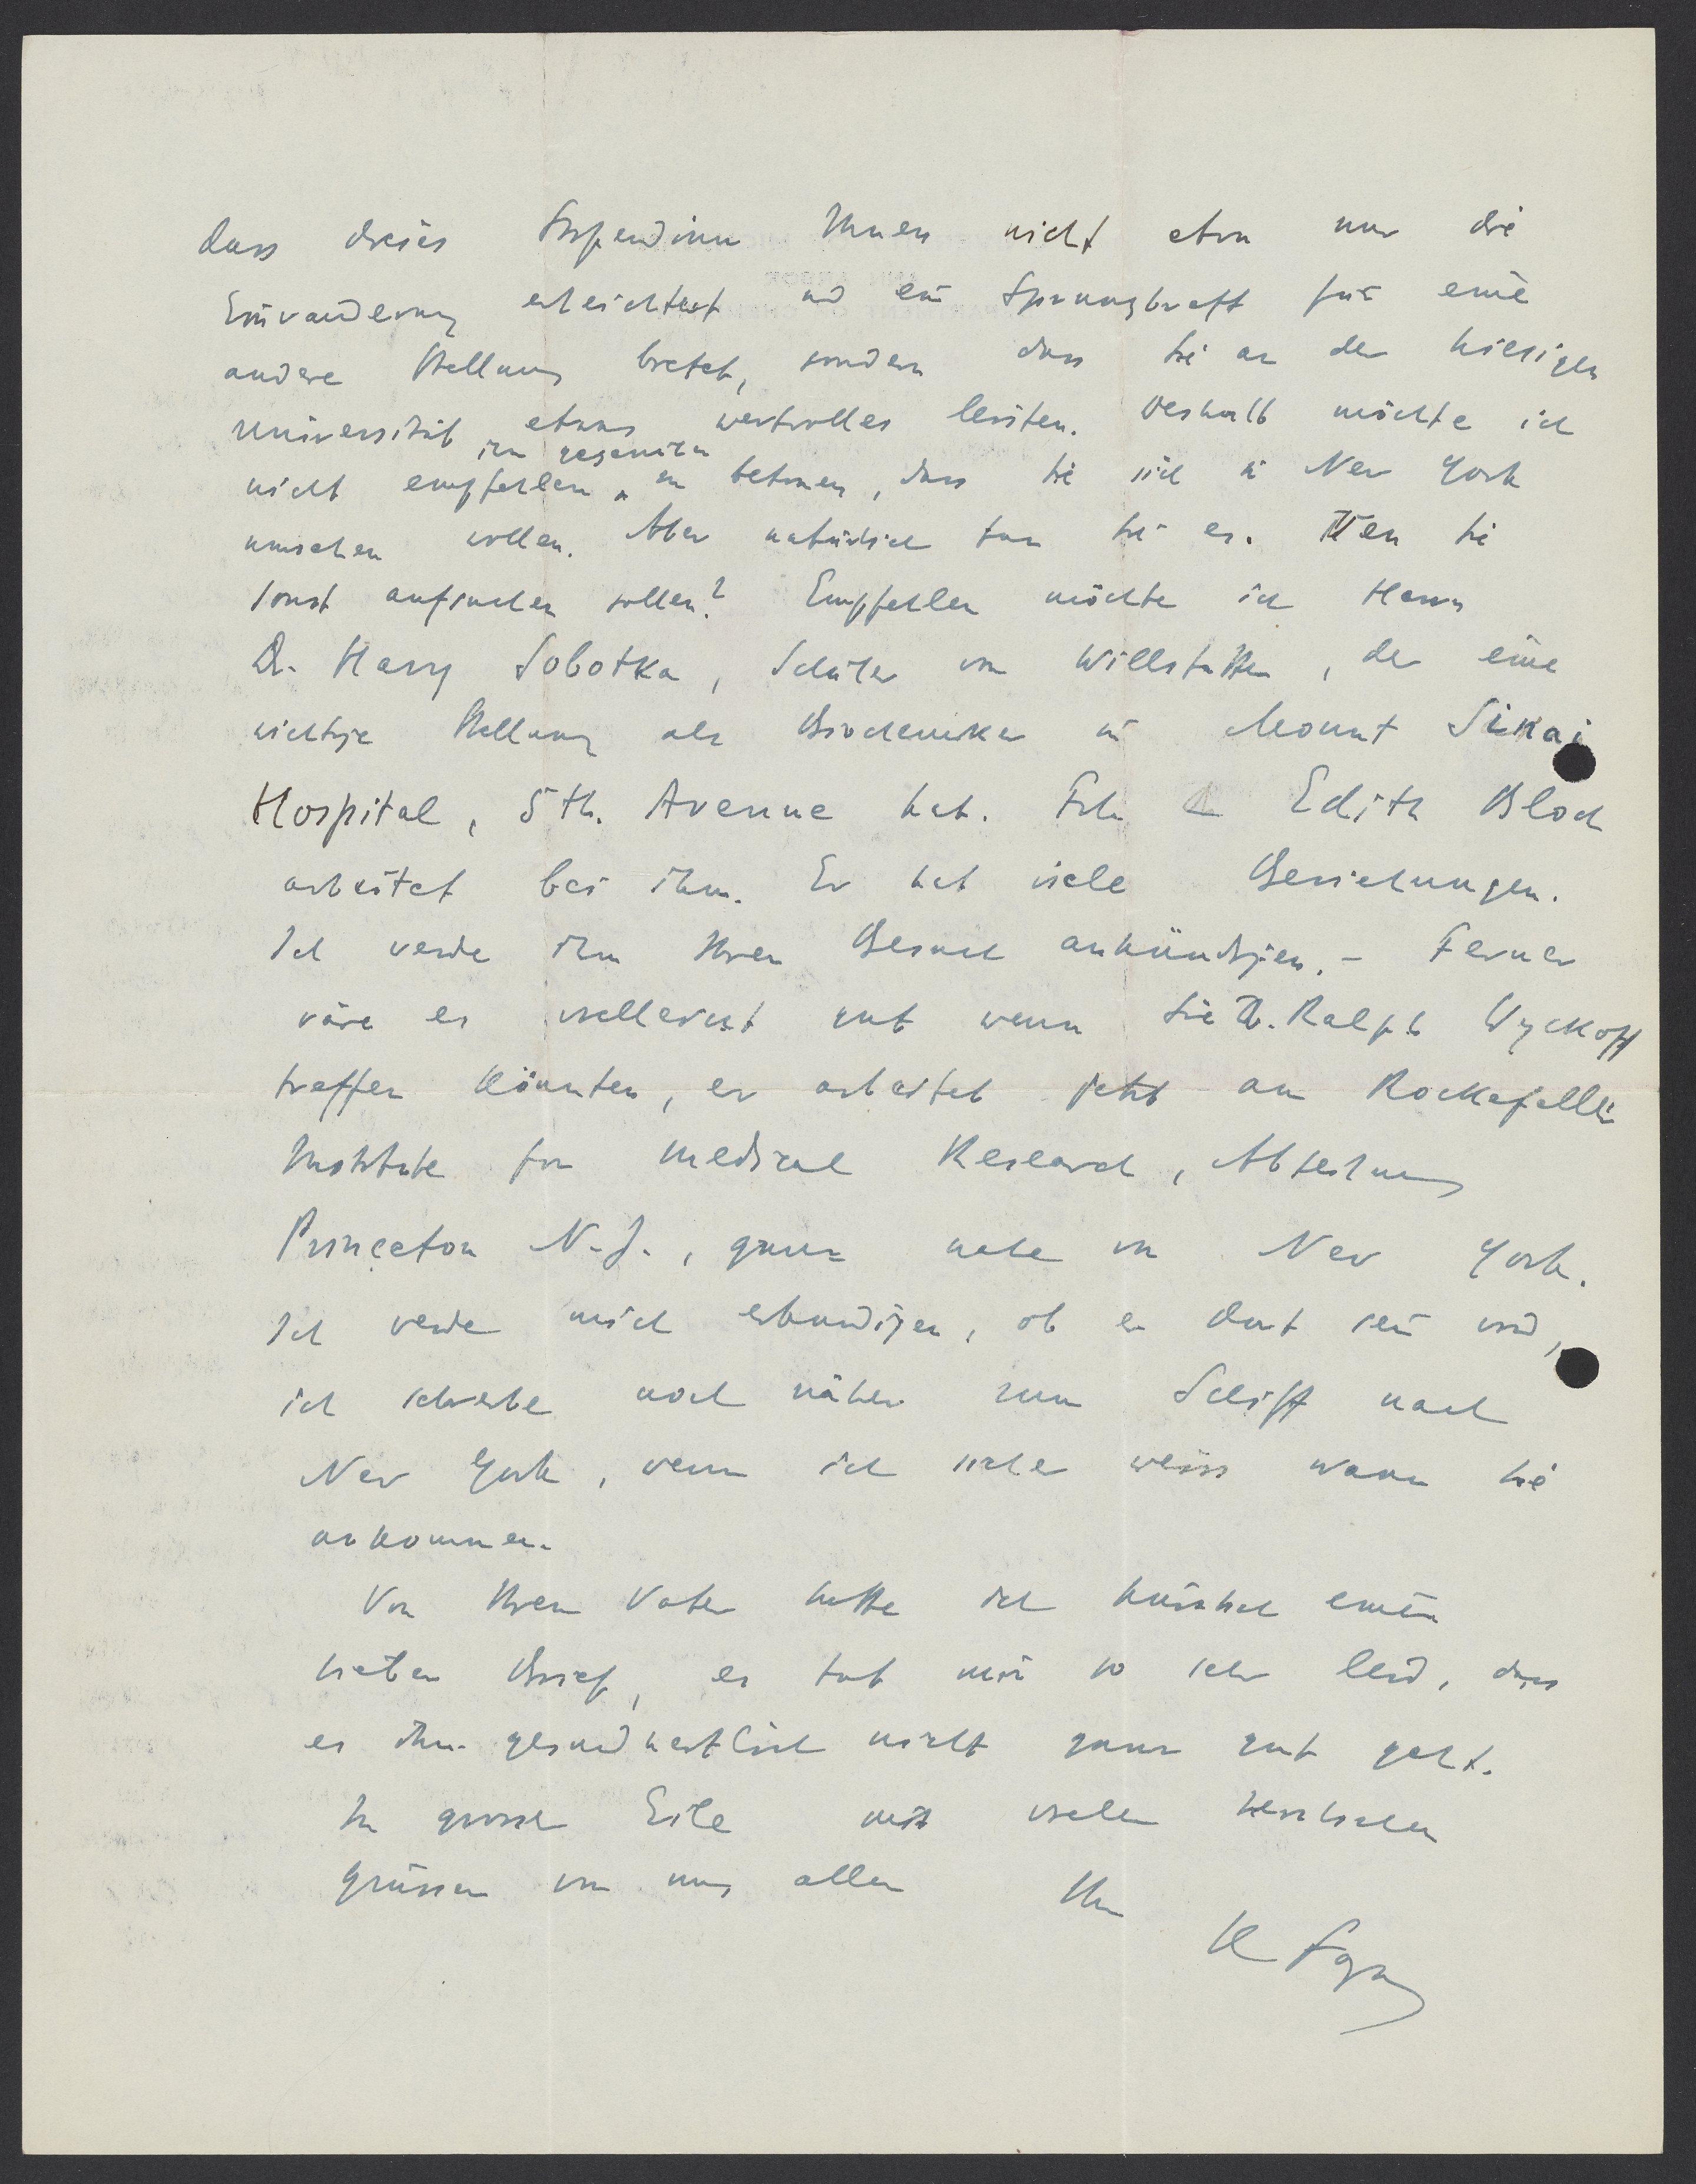 dass dieses Stipendium Ihnen nicht etwa nur die
Einwanderung erleichtert und ein Sprungbrett für eine
andere Stellung bietet, sondern dass Sie an der hiesigen
Universität etwas wertvolles leisten. Deshalb möchte ich
nicht empfehlen, ihm gegenüber zu betonen, dass Sie sich in New York
umsehen wollen. Aber natürlich tun Sie es. Wen Sie
sonst aufsuchen sollen? Empfehlen möchte ich Herrn
Dr. Harry Sobotka, Schüler von Willstätter, der eine
wichtige Stellung als Biochemiker im Mount Sinai
Hospital, 5th. Avenue hat. Frl. Edith Bloch
arbeitet bei ihm. Er hat viele Beziehungen.
Ich werde ihm Ihren Besuch ankündigen. – Ferner
wäre es vielleicht gut wenn Sie Dr. Ralph Wyckoff
treffen könnten, er arbeitet jetzt am Rockefeller
Institute for medical Research, Abteilung
Princeton N.J., ganz nahe von New York.
Ich werde mich erkundigen, ob er dort sein wird,
ich schreibe noch näher zum Schiff nach
New York, wenn ich sicher weiss wann Sie
ankommen.
Von Ihrem Vater hatte ich kürzlich einen
lieben Brief, es tut mir so sehr leid, dass
es ihm gesundheitlich nicht ganz gut geht.
In grosser Eile mit vielen herzlichen
Grüssen von uns allen Ihr
K Fajans